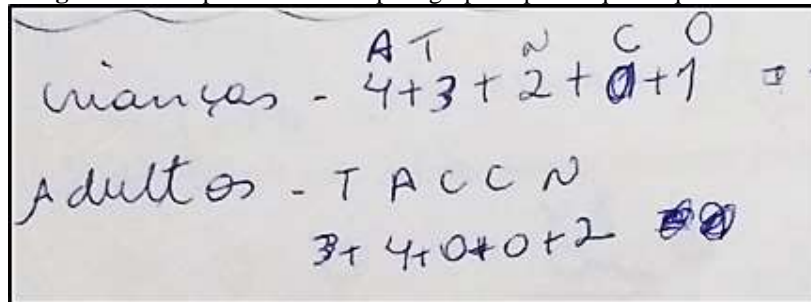 A T N C O
crianças - 4+3+2+0+1 =
Adultos - T A C C N
3+4+0+0+2